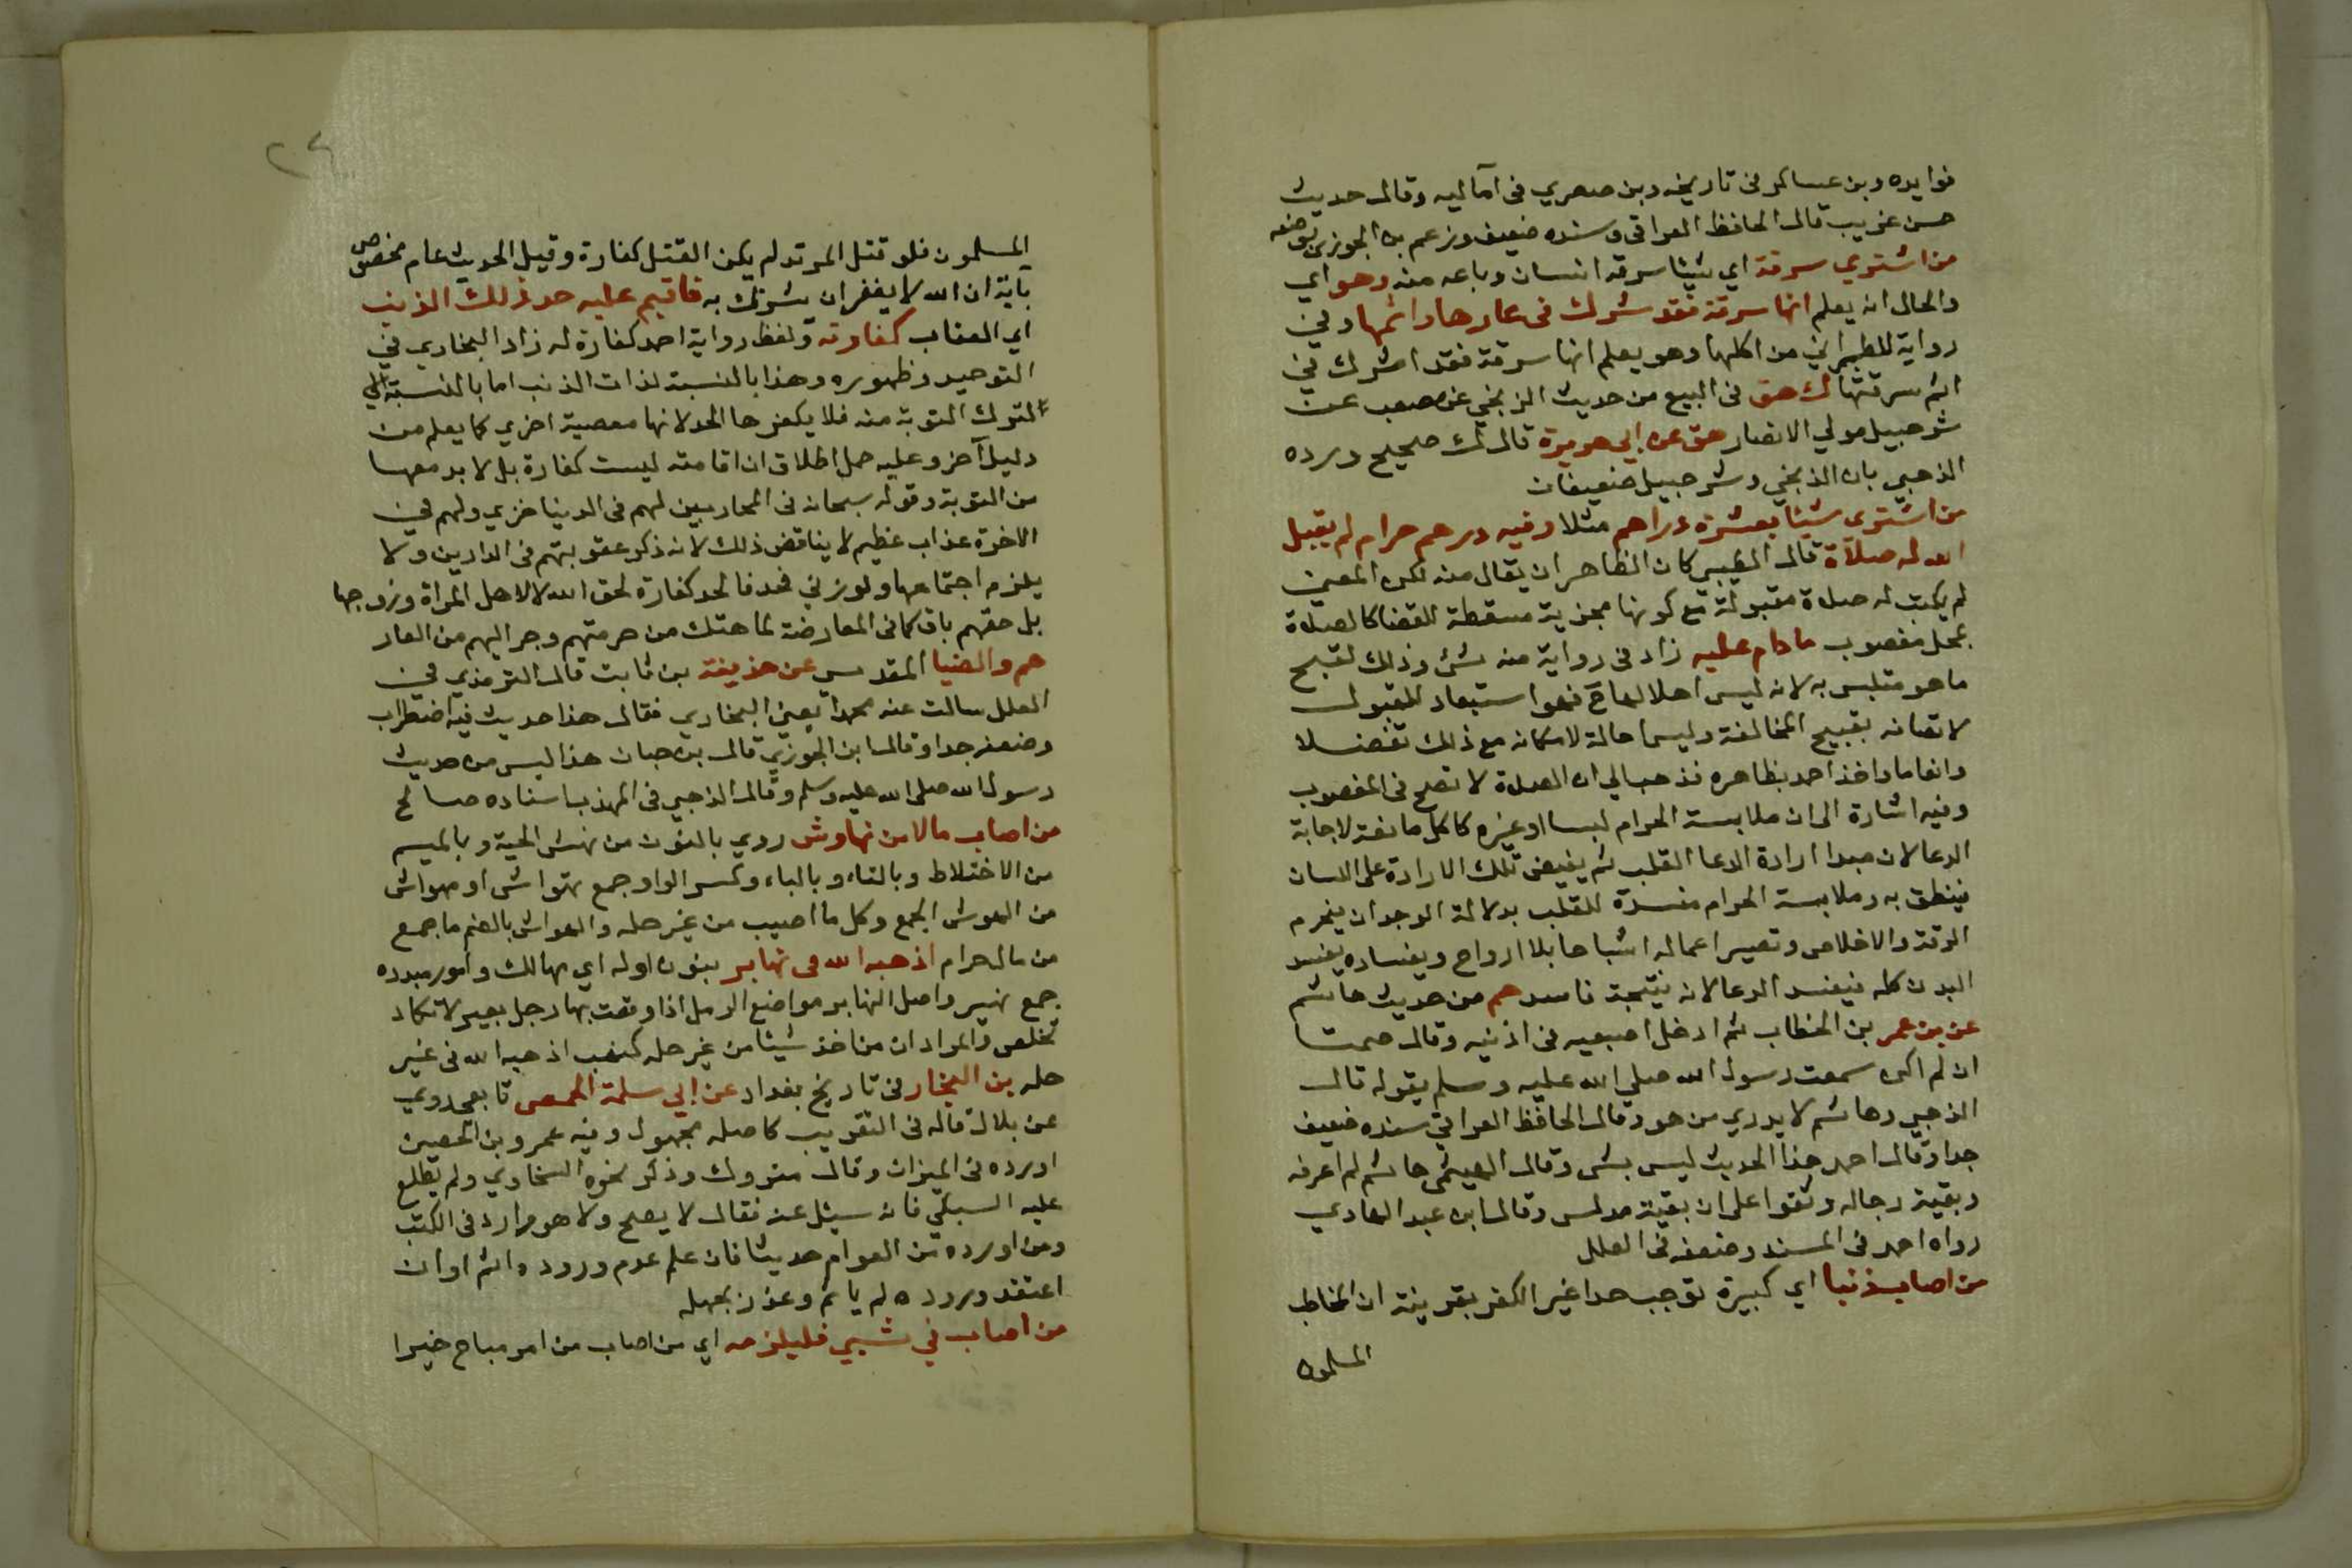 فوايده وبن عساكر فى تاريخه وبن صصري فى اماليه وقال حديث
حسن غريب قال الحافظ العراقى وسنده ضعيف وزعم بن الجوزي بوضعه
من اشتري سرقة اي شيئا سرقه انسان وباعه منه وهو اي
والحال انه يعلم انها سرقة فقد شرك فى عارها واثمها وفي
رواية للطبراني من اكلها وهو يعلم انها سرقة فقد اشرك في
اثم سرقتها ك هق فى البيع من حديث الزنجي عن مصعب عن
شرحبيل مولي الانصار هق عن ابي هريرة قال ك صحيح ورده
الذهبي بان الذنجي وشرحبيل ضعيفان
من اشتري شيئا بعشرة دراهم مثلا وفيه درهم حرام لم يقبل
الله له صلاة قال الطيبي كان الظاهر ان يقال منه لكن المعين
لم يكتب له صلاة مقبولة مع كونها مجزية مسقطة للقضا كالصلاة
بمحل مغصوب ما دام عليه زاد فى رواية منه شئ وذلك لقبح
ما هو متلبس به لانه ليس اهلا لها ح فهوا ستبعاد للقبول
لاتصانه بقبيح المخالفة وليس احالة لامكانه مع ذلك تفضلا
وانعاما واخذ احمد بظاهره فذهب الي ان الصلاة لا تصح فى المغصوب
وفيه اشارة الى ان ملابسة الحرام لبسا او غيره كاكل مانعة لاجابة
الدعا لان مبدا ارادة الدعا القلب ثم يفيض تلك الارادة على اللسان
فينطق به وملابسة الحرام مفسدة للقلب بدلالة الوجدان فيحرم
الرقة والاخلاص وتصير اعماله اشباحا بلا ارواح وبفساده يفسد
البدن كله فيفسد الدعا لانه نتيجة فاسد حم من حديث هاشم
عن بن عمر بن الخطاب ثم ادخل اصبعيه فى اذنيه وقال صمتا
ان لم اكن سمعت رسول الله صلي الله عليه وسلم يقوله قال
الذهبي وهاشم لا يدري من هو وقال الحافظ العراقي سنده ضعيف
جدا وقال احمد هذا الحديث ليس بشي وقال الهيثمي هاشم لم اعرفه
وبقية رجاله وثقوا على ان بقية مدلس وقال ابن عبد الهادي
رواه احمد فى المسند وضعفه فى العلل
من اصاب ذنبا اي كبيرة توجب حدا غير الكفر بقرينة ان المخاطب
المسلمون
٢٤
المسلمون فلو قتل المرتد لم يكن القتل كفارة وقيل الحديث عام مخصوص
بآية ان الله لا يغفر ان يشرك به فاقيم عليه حد ذلك الذنب
اي العقاب كفارته ولفظ رواية احمد كفارة له زاد البخاري في
التوحيد وظهوره وهذا بالنسبة لذات الذنب اما بالنسبة الي
لترك التوبة منه فلا يكفرها الحد لانها معصية اخري كما يعلم من
دليل آخر وعليه حمل اطلاق ان اقامته ليست كفارة بل لا بد معها
من التوبة وقوله سبحانه فى المحاربين لهم فى الدنيا خزي ولهم في
الاخرة عذاب عظيم لا يناقض ذلك لانه ذكر عقوبتهم فى الدارين ولا
يلزم اجتماعها ولو زني فحد فالحد كفارة لحق الله لا لاهل المراة وزوجها
بل حقهم باق كما فى المعارضة لما هتك من حرمتهم وجر اليهم من العار
حم والضيا المقدسي عن خذيفة بن ثابت قال الترمذي في
العلل سالت عنه محمدا يعني البخاري فقال هذا حديث فيه اضطراب
وضعفه جدا وقال ابن الجوزي قال بن حبان هذا ليس من حديث
رسول الله صلى الله عليه وسلم وقال الذهبي فى المهذب اسناده صالح
من اصاب مالا من نهاوش روي بالنون من نهش الحية وبالميم
من الاختلاط وبالتاء وبالباء وكسر الواو جمع تهواش او مهواش
من الهوش الجمع وكل ما اصيب من غير حله والهواش بالضم ما جمع
من مال حرام اذهبه الله فى نهابر بنون اوله اي مهالك وامور مبدده
جمع نهبر واصل النهابر مواضع الرمل اذا وقعت بها رجل بعير لا تكاد
تخلص والمراد ان من اخذ شيئا من غير حله كنهب اذهبه الله فى غير
حله بن النجار فى تاريخ بغداد عن ابي سلمة الحمصي تابعى روي
عن بلال قاله فى التقريب كاصله مجهول وفيه عمرو بن الحصين
اورده فى الميزان وقال متروك وذكر نحوه السخاوي ولم يطلع
عليه السبكي فانه سيئل عنه فقال لا يصح ولا هو وارد فى الكتب
ومن اورده من العوام حديثا فان علم عدم وروده اثم وان
اعتقد وروده لم ياثم وعذر بجهله
من اصاب في شي فليلزمه اي من اصاب من امر مباح خيرا